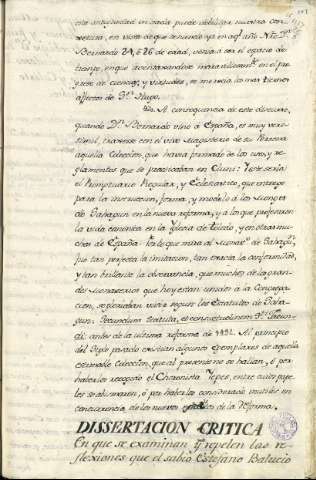 esta antiguedad en nada puede debilitar nuestra con-
getura, en vista de que tenemos ya en aql. año Nto. Dn.
Bernardo 24, ó 26 de edad, sobra de ser el espacio de
tiempo, en que acreditandose maravillosamte. en el pro-
greso de ciencias, y virtudes, se merecia los mas tiernos
afectos de Sn. Hugo.
A consequencia de este discurso,
quando Dn. Bernardo vino á España, es muy vero-
simil, traxese con el vivo Magisterio de su Persona
aquella Coleccion, que havia formado de los usos, y re-
glamentos que se practicaban en Cluni. Este seria
el Promptuario Regular, y Eclesiastico, que entregó
para la instruccion, forma, y modelo á los Monges
de Sahagun en la nueva reforma, y á los que profesaron
la vida canonica en la Yglesia de Toledo, y en otras mu-
chas de España. Por lo que mira al Monasrio. de Sahagn.
fue tan perfecta la imitacion, tan exacta la conformidad,
y tan brillante la observancia, que muchos de los gran-
des Monasterios que hoy estan unidos á la Congrega-
cion, se gloriaban vivir segun los Estatutos de Saha-
gun. Secundum Statuta, et consuetudinem Sti. Facun-
di: antes de la ultima reforma de 1492. Al principio
del Siglo pasado existian algunos exemplares de aquella
estimable Coleccion, que al presente no se hallan, ó por
haberlos recogido el Chronista Yepes, entre cuios pape-
les se consumieron, ó por haberlos considerado inutiles en
concurrencia de los nuevos de la Reforma.
DISSERTACION CRITICA
En que se examinan y repelen las re-
flexiones que el sabio Estefano Balucio